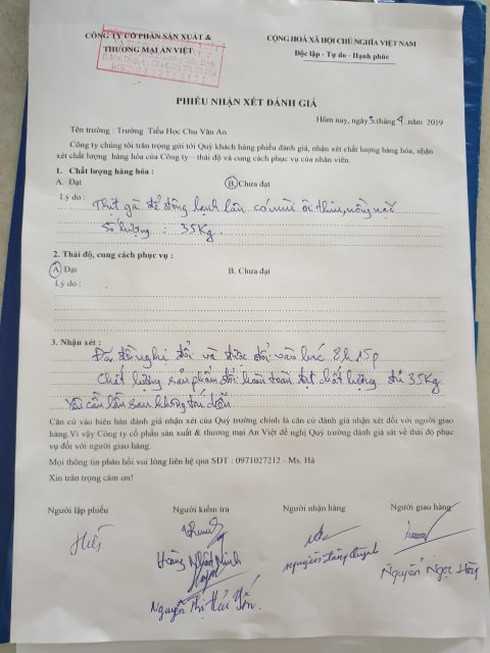 CÔNG TY CỔ PHẦN SẢN XUẤT &
THƯƠNG MẠI AN VIỆT
CỘNG HOÀ XÃ HỘI CHỦ NGHĨA VIỆT NAM
Độc lập - Tự do - Hạnh phúc
PHIẾU NHẬN XÉT ĐÁNH GIÁ
Hôm nay, ngày 3 tháng 4 năm 2019
Tên trường : Trường Tiểu Học Chu Văn An
Công ty chúng tôi trân trọng gửi tới Quý khách hàng phiếu đánh giá, nhận xét chất lượng hàng hóa, nhận
xét chất lượng hàng hóa của Công ty – thái độ và cung cách phục vụ của nhân viên.
1. Chất lượng hàng hóa :
A. Đạt B. Chưa đạt
Lý do : Thịt gà để đông lạnh lẫn có mùi ôi thiu, nồng nặc
Số lượng : 35Kg.
2. Thái độ, cung cách phục vụ :
A. Đạt B. Chưa đạt
Lý do :
3. Nhận xét : Đã đề nghị đổi và được đổi vào lúc 8h15p
Chất lượng sản phẩm đổi hoàn toàn đạt chất lượng đủ 35Kg
Yêu cầu lần sau không tái diễn
Căn cứ vào biên bản đánh giá nhận xét của Quý trường chính là căn cứ đánh giá nhận xét đối với người giao
hàng. Vì vậy Công ty cổ phần sản xuất & thương mại An Việt đề nghị Quý trường đánh giá sát về thái độ phục
vụ đối với người giao hàng.
Mọi thông tin phản hồi vui lòng liên hệ qua SDT : 0971027212 - Ms. Hà
Xin trân trọng cảm ơn!
Người lập phiếu Người kiểm tra Người nhận hàng Người giao hàng
Hoàng Nhật Minh
Nguyễn Ngọc
Nguyễn Thị Hải Yến.